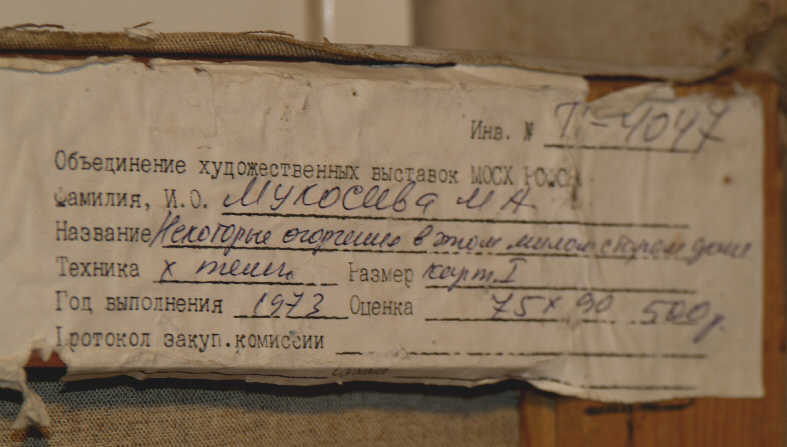 Инв. № Т-4047
Объединение художественных выставок МОСХ РСФСР
Фамилия, И.О. Мукосеева М А
Название Некоторые огорчения в этом милом старом доме
Техника х темп. Размер карт. I
Год выполнения 1973 Оценка 75х90 500р.
Протокол закуп.комиссии